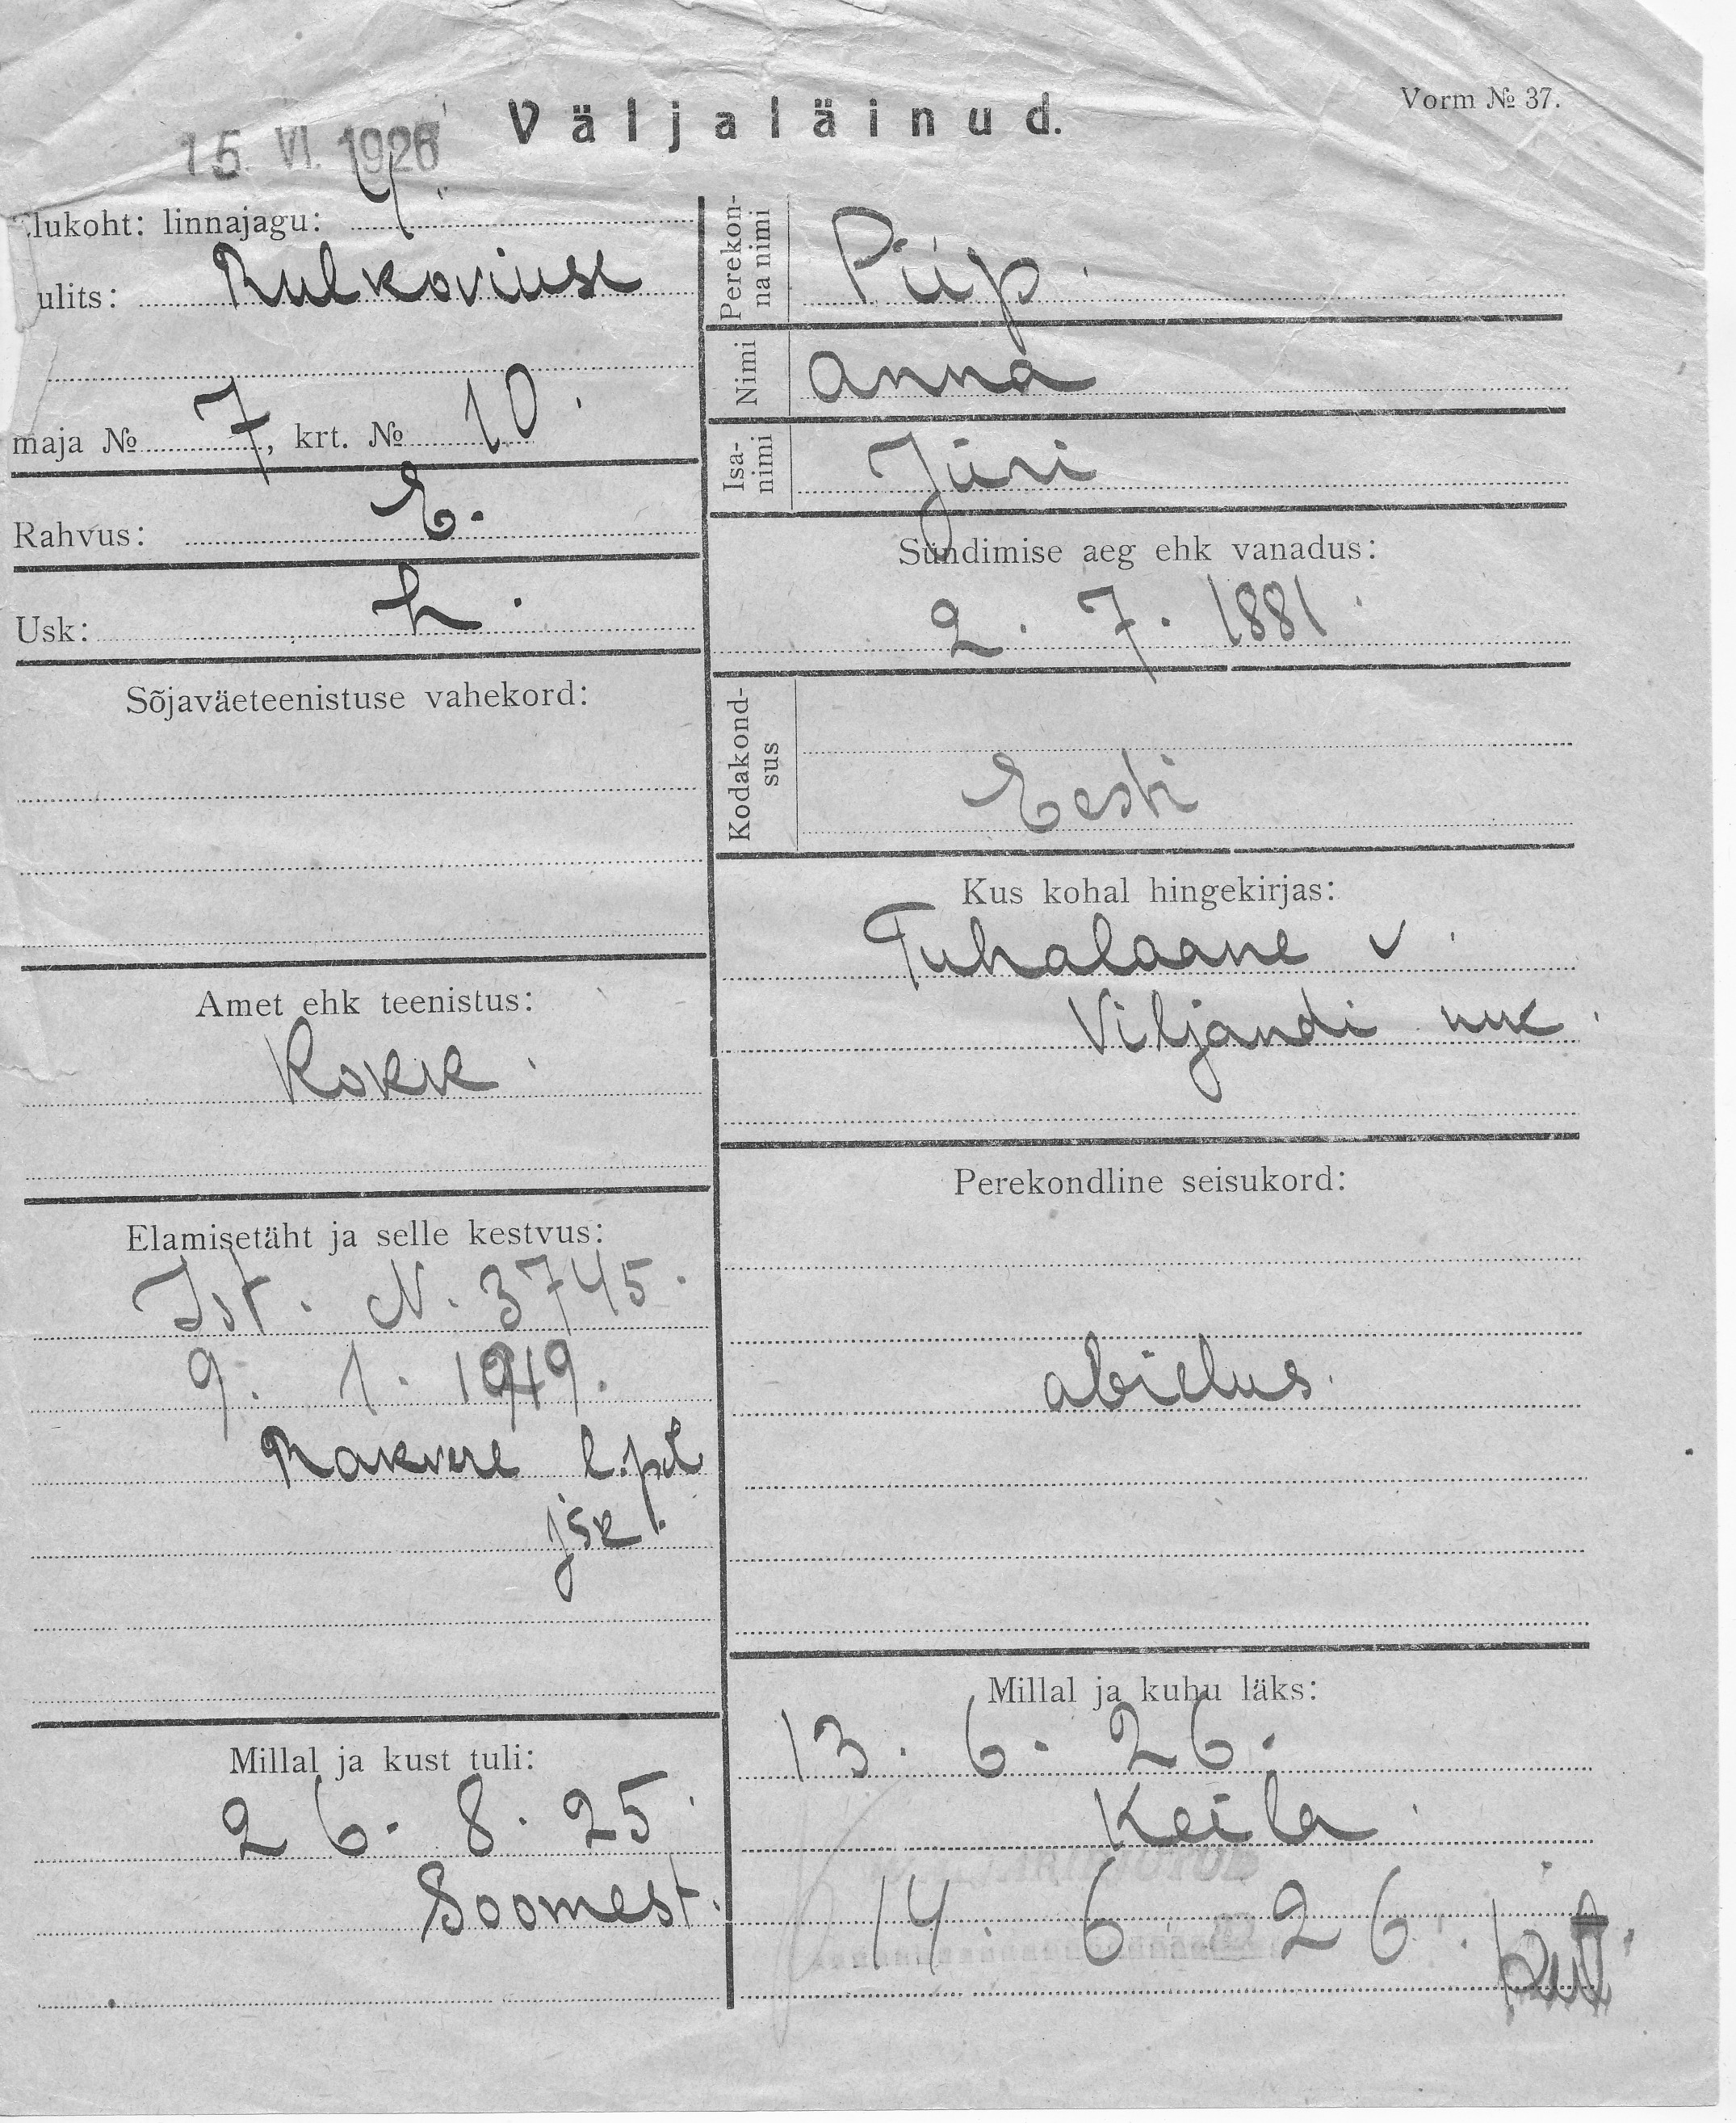 Vorm № 37.
Väljaläinud.
15. VI. 1926
lukoht: linnajagu: 4.
ulits: Rulkoviuse
maja № 7, krt. № 10.
Rahvus: E.
Usk: L.
Sõjaväeteenistuse vahekord:
Amet ehk teenistus:
Kokk.
Elamisetäht ja selle kestvus:
Ist. N. 3745.
9. 1. 1919.
Rakvere l. pol.
jsk.
Millal ja kust tuli:
26. 8. 25.
Soomest.
Perekon-
na nimi
Piip.
Nimi
Anna
Isa-
nimi
Jüri
Sündimise aeg ehk vanadus:
2. 7. 1881.
Kodakond-
sus
Eesti
Kus kohal hingekirjas:
Tuhalaane v.
Viljandi mk.
Perekondline seisukord:
abielus.
Millal ja kuhu läks:
13. 6. 26.
Keila.
14. 6. 26.